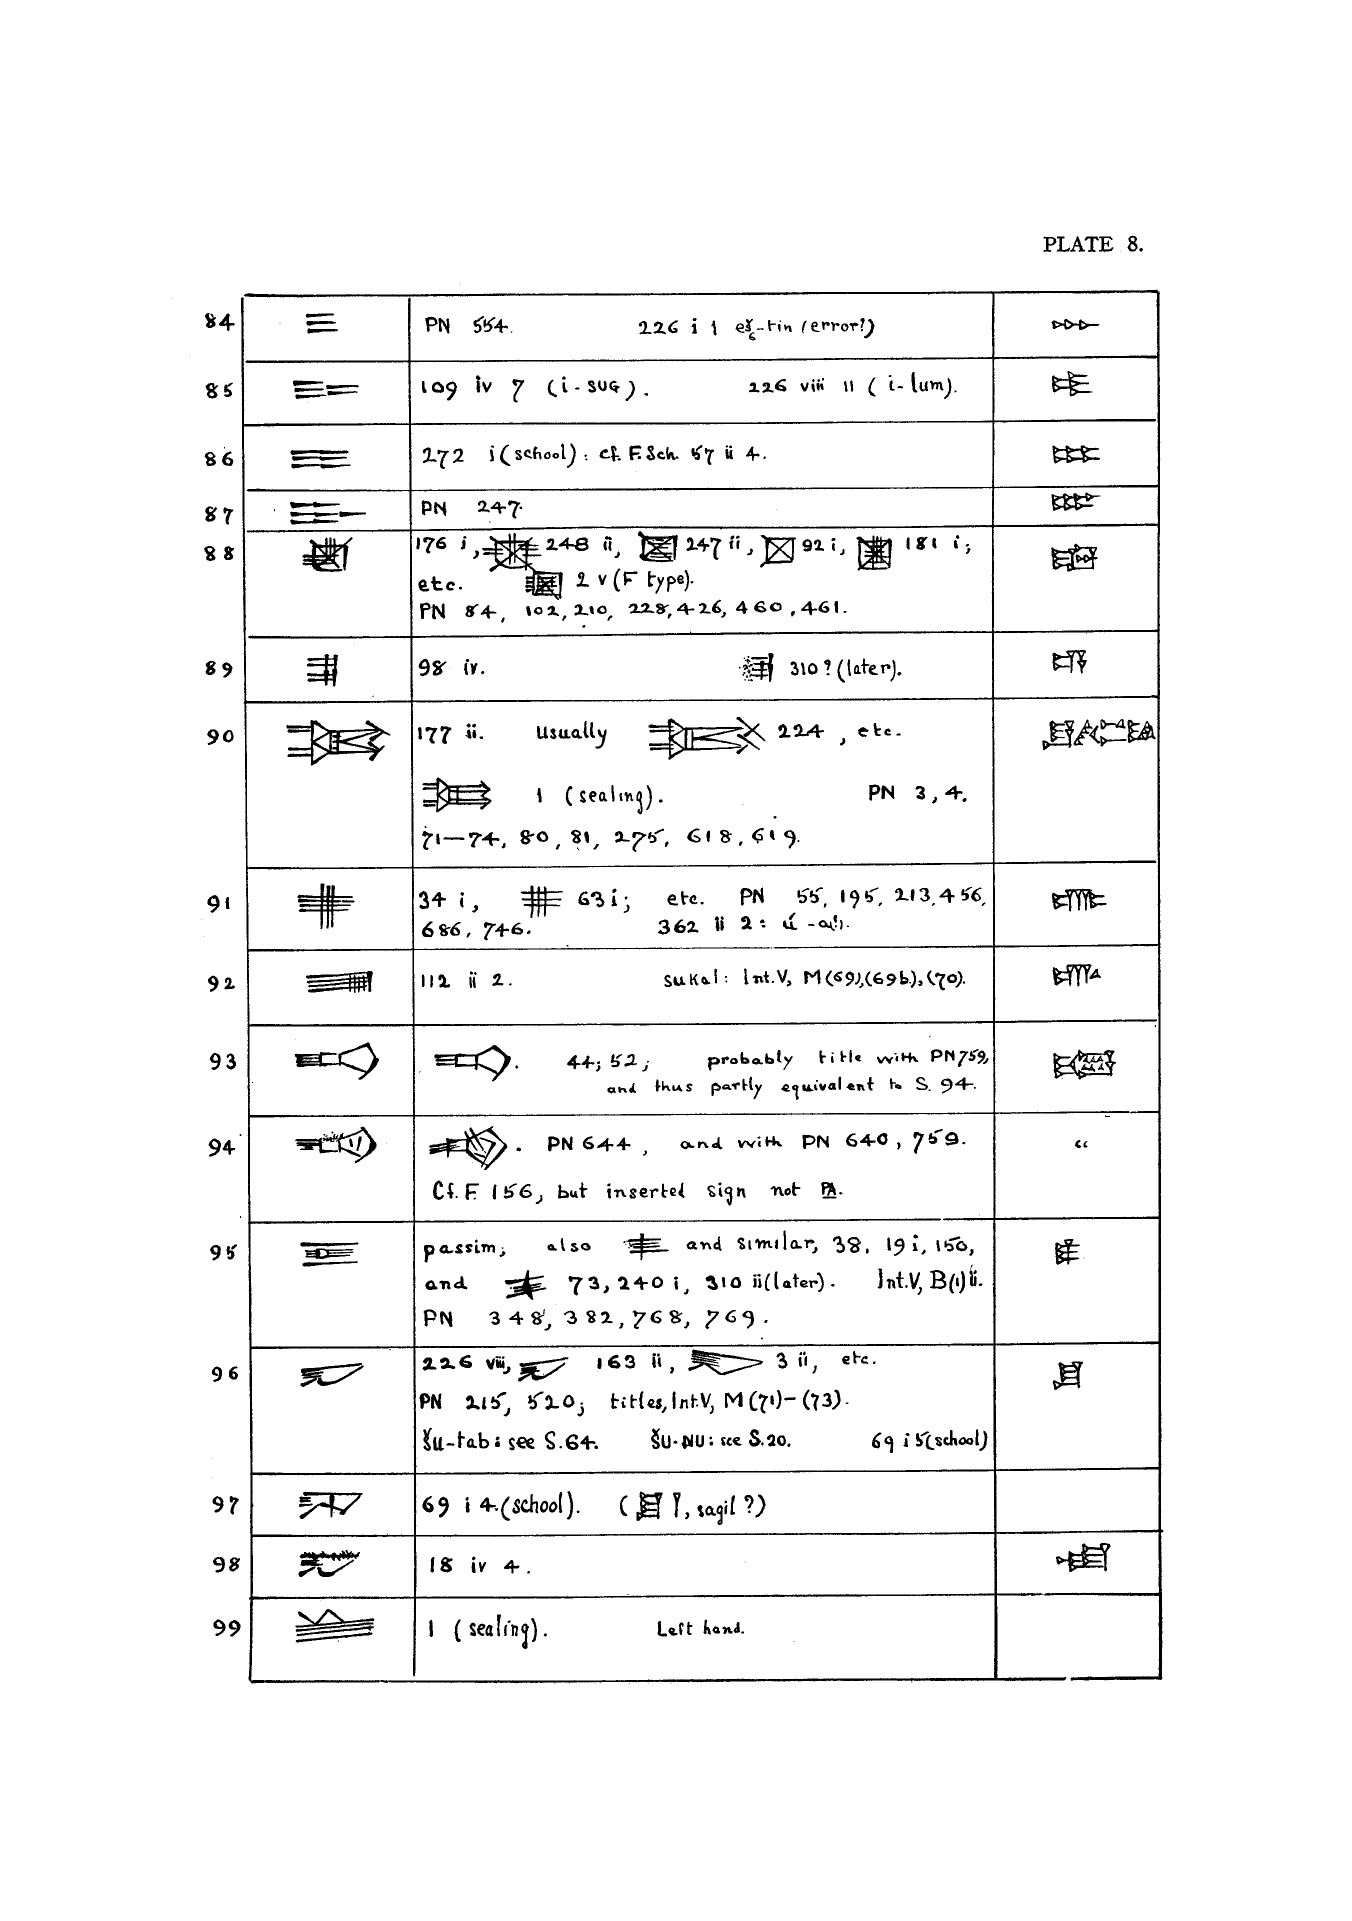 PLATE 8.
84 PN 554. 226 i 1 eš₆-tin (error?)
85 109 iv 7 (i-SUG). 226 viii 11 (i-lum).
86 272 i (school): cf. F.Sch. 57 ii 4.
87 PN 247.
88 176 i, 248 ii, 247 ii, 92 i, 181 i;
etc. 2 v (F type).
PN 84, 102, 210, 228, 426, 460, 461.
89 98 iv. 310? (later).
90 177 ii. Usually 224, etc.
1 (sealing). PN 3, 4.
71—74, 80, 81, 275, 618, 619.
91 34 i, 63 i; etc. PN 55, 195, 213, 456,
686, 746. 362 ii 2:
92 112 ii 2. sukal: Int.V, M(69),(69b),(70).
93 44; 52; probably title with PN 759,
and thus partly equivalent to S. 94.
94 . PN 644, and with PN 640, 759. “
Cf. F. 156, but inserted sign not PA.
95 passim; also and similar, 38, 19 i, 150,
and 73, 240 i, 310 ii (later). Int.V, B(1) ii.
PN 348, 382, 768, 769.
96 226 viii, 163 ii, 3 ii, etc.
PN 215, 520; titles, Int.V, M(71)–(73).
ŠU-tab: see S.64. ŠU-NU: see S.20. 69 i 5 (school)
97 69 i 4. (school). ( , sagil?)
98 18 iv 4.
99 1 (sealing). Left hand.